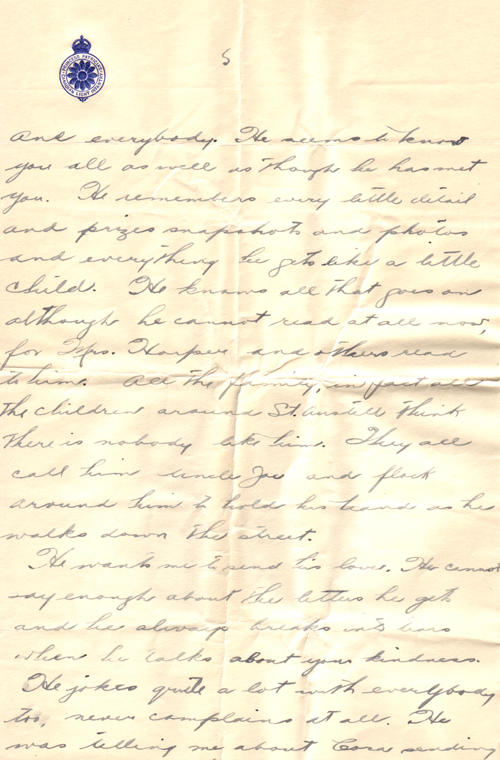 5
and everybody. He seems to know
you all as well as though he has met
you. He remembers every little detail
and prizes snapshots and photos
and everything he gets like a little
child. He knows all that goes on
although he cannot read at all now,
for Mrs. Harper and others read
to him. All the family, in fact all
the children around St. Austell think
there is nobody like him. They all
call him Uncle Joe and flock
around him to hold his hand as he
walks down the street.
He wants me to send his love. He cannot
say enough about the letters he gets
and he always breaks into tears
when he talks about your kindness.
He jokes quite a lot with everybody
too, never complains at all. He
was telling me about Cora sending